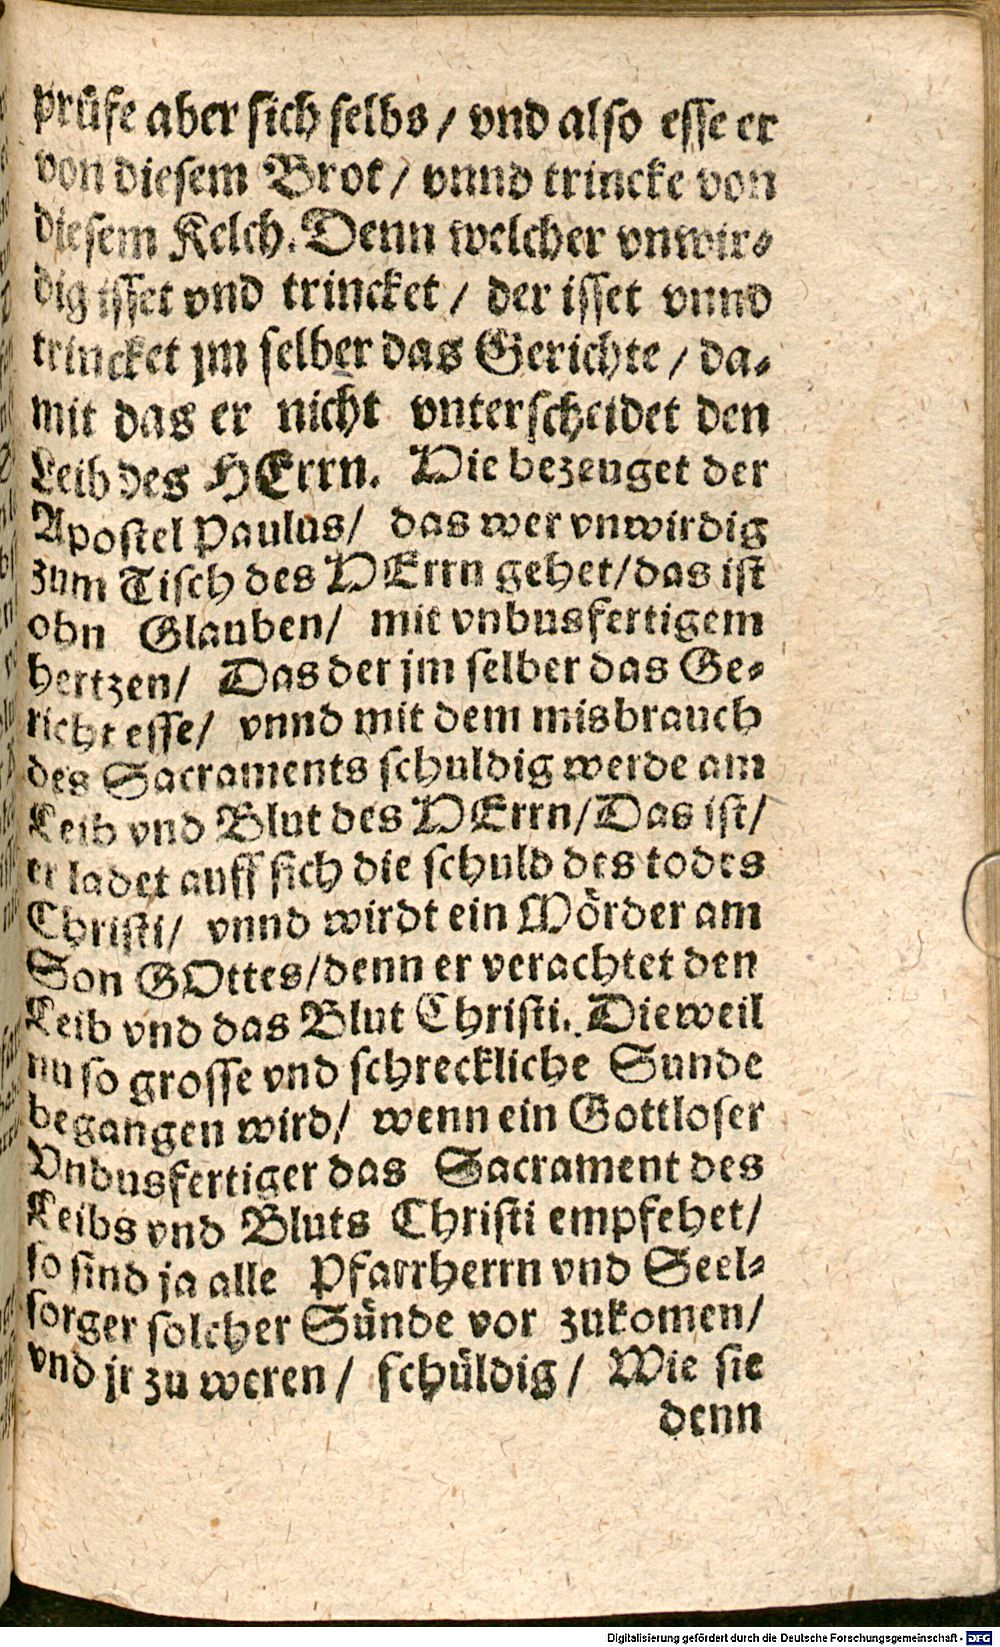 prüfe aber sich selbs / vnd also esse er
von diesem Brot / vnnd trincke von
diesem Kelch. Denn welcher vnwir⸗
dig isset vnd trincket / der isset vnnd
trincket jm selber das Gerichte / da⸗
mit das er nicht vnterscheidet den
Leib des HErrn. Hie bezeuget der
Apostel Paulus / das wer vnwirdig
zum Tisch des HErrn gehet / das ist
ohn Glauben / mit vnbusfertigem
hertzen / Das der jm selber das Ge⸗
richt esse / vnnd mit dem misbrauch
des Sacraments schuldig werde am
Leib vnd Blut des HErrn / Das ist /
er ladet auff sich die schuld des todes
Christi / vnnd wirdt ein Mörder am
Son GOttes / denn er verachtet den
Leib vnd das Blut Christi. Dieweil
nu so grosse vnd schreckliche Sunde
begangen wird / wenn ein Gottloser
Vnbusfertiger das Sacrament des
Leibs vnd Bluts Christi empfehet /
so sind ja alle Pfarrherrn vnd Seel⸗
sorger solcher Sünde vor zukomen /
vnd jr zu weren / schüldig / Wie sie
denn
Digitalisierung gefördert durch die Deutsche Forschungsgemeinschaft - DFG